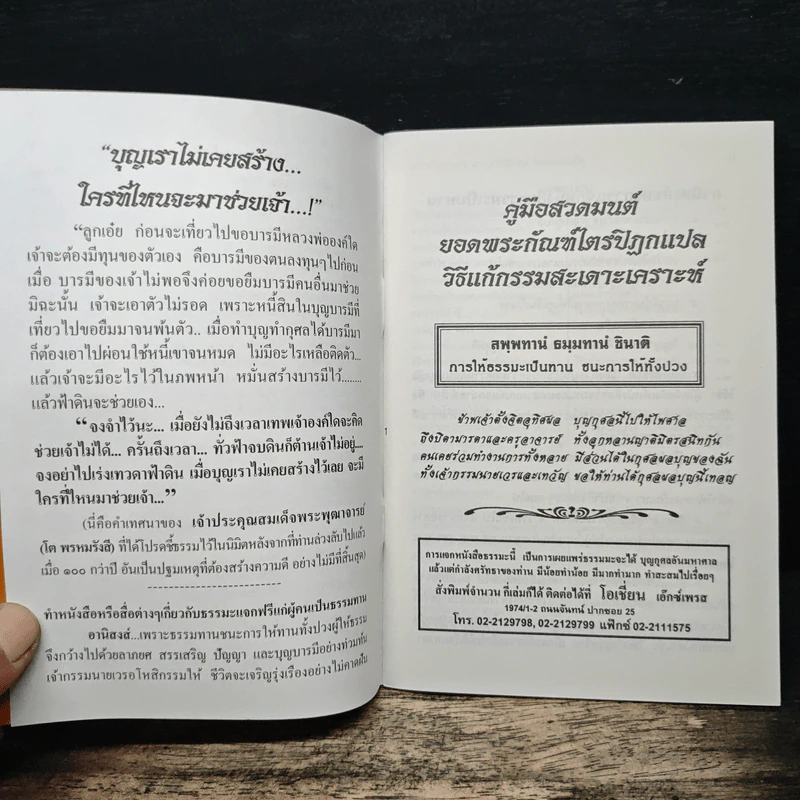 “บุญเราไม่เคยสร้าง...
ใครที่ไหนจะมาช่วยเจ้า...!”
“ลูกเอ๋ย ก่อนจะเที่ยวไปขอบารมีหลวงพ่อองค์ใด
เจ้าจะต้องมีทุนของตัวเอง คือบารมีของตนลงทุนๆไปก่อน
เมื่อ บารมีของเจ้าไม่พอจึงค่อยขอยืมบารมีคนอื่นมาช่วย
มิฉะนั้น เจ้าจะเอาตัวไม่รอด เพราะหนี้สินในบุญบารมีที่
เที่ยวไปขอยืมมาจนพ้นตัว.. เมื่อทำบุญทำกุศลได้บารมีมา
ก็ต้องเอาไปผ่อนใช้หนี้เขาจนหมด ไม่มีอะไรเหลือติดตัว...
แล้วเจ้าจะมีอะไรไว้ในภพหน้า หมั่นสร้างบารมีไว้........
แล้วฟ้าดินจะช่วยเอง...
“จงจำไว้นะ... เมื่อยังไม่ถึงเวลาเทพเจ้าองค์ใดจะคิด
ช่วยเจ้าไม่ได้... ครั้นถึงเวลา... ทั่วฟ้าจบดินก็ต้านเจ้าไม่อยู่...
จงอย่าไปเร่งเทวดาฟ้าดิน เมื่อบุญเราไม่เคยสร้างไว้เลย จะมี
ใครที่ไหนมาช่วยเจ้า...”
(นี่คือคำเทศนาของ เจ้าประคุณสมเด็จพระพุฒาจารย์
(โต พรหมรังสี) ที่ได้โปรดชี้ธรรมไว้ในนิมิตหลังจากที่ท่านล่วงลับไปแล้ว
เมื่อ ๑๐๐ กว่าปี อันเป็นปฐมเหตุที่ต้องสร้างความดี อย่างไม่มีที่สิ้นสุด)
ทำหนังสือหรือสื่อต่างๆเกี่ยวกับธรรมะแจกฟรีแก่ผู้คนเป็นธรรมทาน
อานิสงส์...เพราะธรรมทานชนะการให้ทานทั้งปวงผู้ให้ธรรม
จึงกว้างไปด้วยลาภยศ สรรเสริญ ปัญญา และบุญบารมีอย่างท่วมท้น
เจ้ากรรมนายเวรอโหสิกรรมให้ ชีวิตจะเจริญรุ่งเรืองอย่างไม่คาดฝัน
1
คู่มือสวดมนต์
ยอดพระกัณฑ์ไตรปิฏกแปล
วิธีแก้กรรมสะเดาะเคราะห์
สพฺพทานํ ธมฺมทานํ ชินาติ
การให้ธรรมะเป็นทาน ชนะการให้ทั้งปวง
ข้าพเจ้าตั้งจิตอุทิศผล บุญกุศลนี้ไปให้ไพศาล
ถึงบิดามารดาและครูอาจารย์ ทั้งลูกหลานญาติมิตรสนิทกัน
คนเคยร่วมทำงานการทั้งหลาย มีส่วนได้ในกุศลผลบุญของฉัน
ทั้งเจ้ากรรมนายเวรและเทวัญ ขอให้ท่านได้กุศลผลบุญนี้เทอญ
การแจกหนังสือธรรมะนี้ เป็นการเผยแพร่ธรรมมะจะได้ บุญกุศลอันมหาศาล
แล้วแต่กำลังศรัทธาของท่าน มีน้อยทำน้อย มีมากทำมาก ทำสะสมไปเรื่อยๆ
สั่งพิมพ์จำนวน กี่เล่มก็ได้ ติดต่อได้ที่ โอเชี่ยน เอ๊กซ์เพรส
1974/1-2 ถนนจันทน์ ปากซอย 25
โทร. 02-2129798, 02-2129799 แฟ๊กซ์ 02-2111575